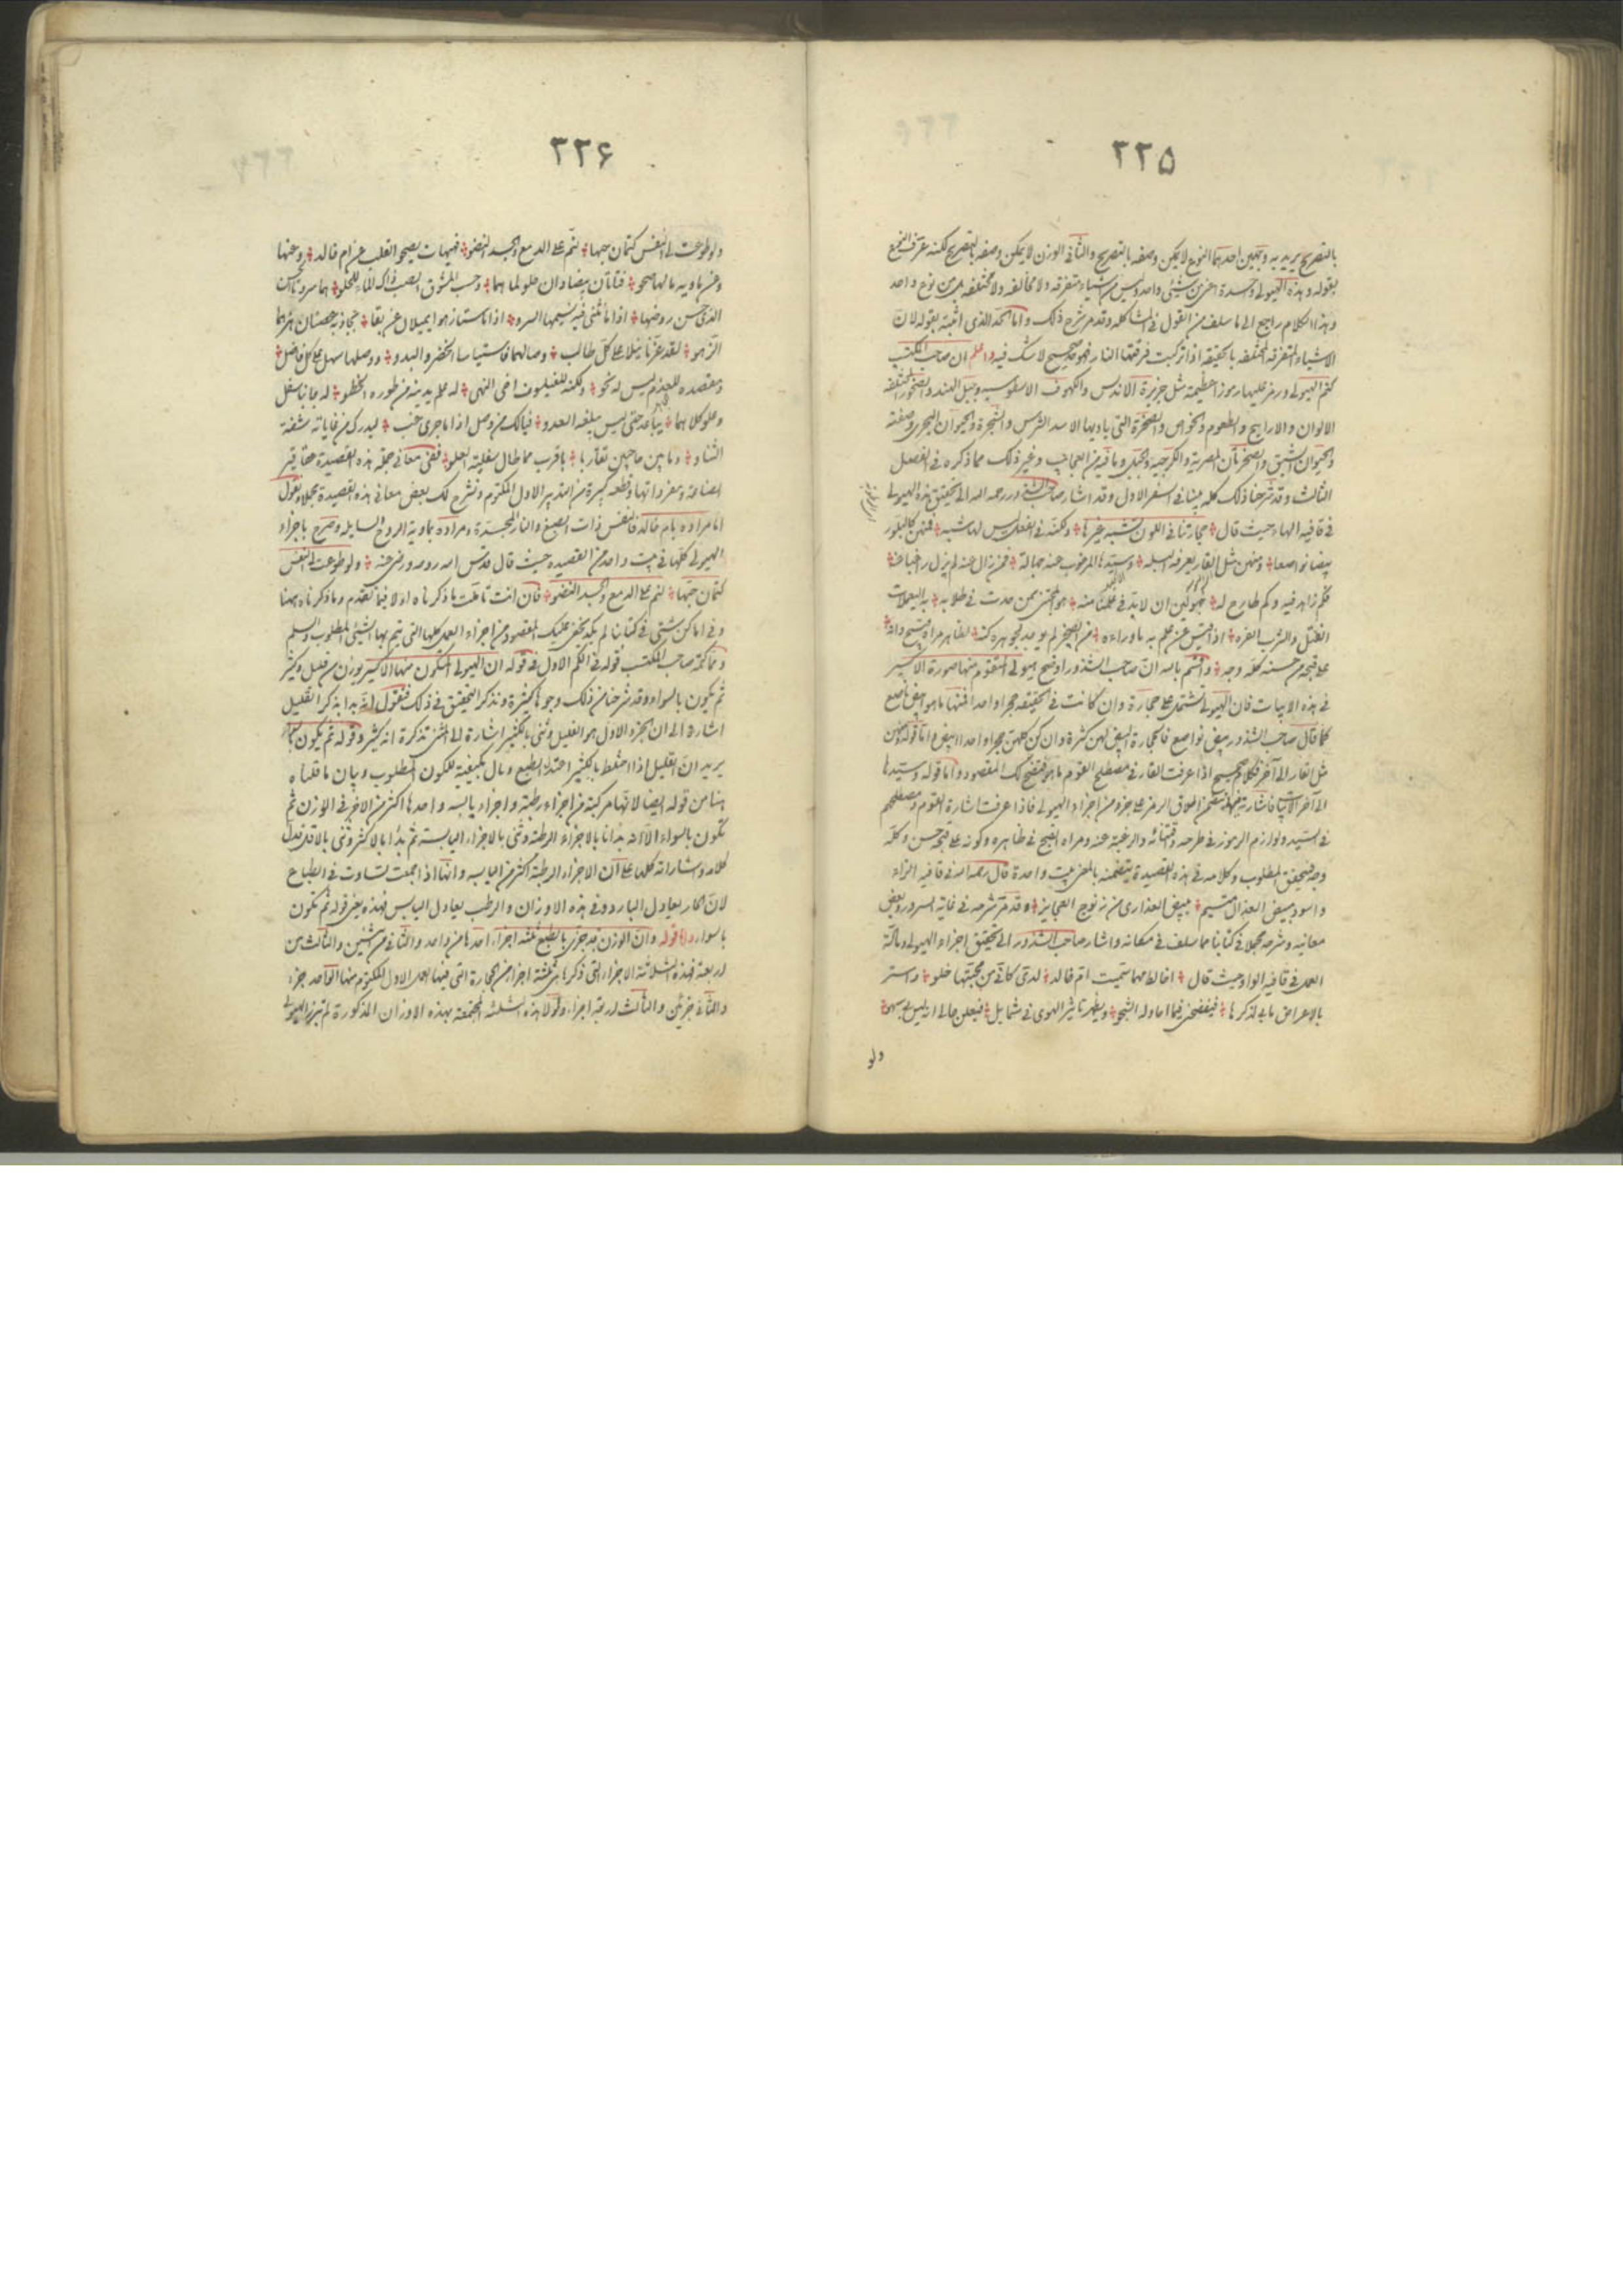 ٣٣٥
بالتصريح يريد به وجهين احدهما النوع لا يمكن وصفه بالتصريح والثانى الوزن لا يمكن وصفه بالتصريح لكنه عرف النوع
بقوله وهذه الهيولى وحدة اعنى من شيئ واحد وليس من اشياء متفرقة ولا مخالفه ولا مختلفه بل من نوع واحد
وهذا الكلام راجع الى ما سلف من القول فى المشاكله وقد مر شرح ذلك واما الحد الذى اثبته بقوله لان
الاشياء المتفرقه المختلفه بالحقيقه اذا تركبت فرقتها النار فهو حد صحيح لا شك فيه واعلم ان صاحب المكتسب
كتم الهيولى ورمز عليها رموزا عظيمة مثل جزيرة الاندلس والكهوف وجبل الهند والصخور المختلفه
الالوان والاراييح والطعوم والخواص والصخرة التى باديها الاسد الشرس والشجرة والحيوان البحرى وصفته
والصخرتان المصرية والجبل وما فيه من العجايب وغير ذلك مما ذكره فى الفصل
الثالث وقد شرحنا ذلك كله بينا فى السفر الاول وقد اشار صاحب الشذور رحمه الله الى تحقيق هذه الهيولى
فى قافيه الهاء حيث قال حجارتنا فى اللون تشبه غيرها ولكنه فى الفعل ليس لها شبه فمنهن كالبلور
بيضا نواصعا ومنهن مثل القار يعرفه البله وسيدها المرغوب عنه جهالة فمن زال عنه لم يزل راغبا عنه
فكم زاهد فيه وكم طارح له
اذا فتش عن علم به ما وراءه
على قبحه من حسنه كله وجه واقسم بالله ان صاحب الشذور اوضح هيولى المتقوم منها صورة الاكسير
فى هذه الابيات فان الهيولى تشتمل على حجارة وان كانت فى الحقيقه حجرا واحدا فمنها ما هو ابيض ناصع
كما قال صاحب الشذور بيض نواصع فالحجارة البيض لهن كثرة وان كن كلهن حجرا واحدا ابيض واما قوله ومنهن
مثل القار الى آخر فكلام صحيح اذا عرفت القار فى مصطلح القوم ما هو فيتضح لك المقصود واما قوله وسيدها
الى آخر الابيات فاشارة جزء من اجزاء الهيولى فاذا عرفت اشارة القوم ومصطلحهم
فى السيد ولوازم الرموز فى طرحه والرغبة عنه ومراه القبيح فى ظاهره وكونه على قبحه حسن وكله
وجه فيتحقق المطلوب وكلامه فى هذه القصيدة يتضمنه بالمعنى بيت واحدة قال رحمه الله فى قافيه الزاء
بيض العذارى من زنوج العجايز وقد مر شرحه فى غاية السرور وبعض
معانيه وشرحه مجملا فى كتابنا مما سلف فى مكانه واشار صاحب الشذور الى تحقيق اجزاء الهيولى ومادة
العمل فى قافيه الواو حيث قال اغالط مهما سميت ام خالد لدى كانى من محبتها خلو واستر
بالاعراض ما بى لذكرها فيفضحنى فيما احاوله الشجو ويظهر تاثير الهوى فى شمايل فيعلن حالى انه ليس بى سهو
ولو
٣٣۶
ولو طوعت لى النفس كتمان حبها لنم على الدمع والجسد النضو فهيهات يصحو القلب عن ام خالد وعنها
وعن ماويه مالها صحو فتاتان بيضاوان حلو لماهما وحسب المشوق الصب ذاك اللماء الحلو هما سروتا
الذى حسن روضها اذا ما تثنى فيه نسيمها السرو اذا ما استنارهوا يميلان عن بقا
الزهو لقد عزنا نيلا على كل طالب وصالهما فاستياسا الحضر والبدو ووصلها سهل على كل فاضل
ومقصده للغدم ليس له نحو ولكنه للفيلسوف اخى النهى له علم يدنيه من طوره الخطو له جانبا سفل
وعلو كلاهما يباعد حتى ليس يبلغه العدو فيالك من وصل اذا ما جرى ليدرك من غاياته شقة
الشاو وما بين حاجبين تقاربا باقرب مما طال سفليته العلو ففى معانى جملة هذه القصيدة حقايق
الصناعة ومفرداتها وقطعه كبيرة من التدبير الاول المكتوم ونشرح لك بعض معانى هذه القصيدة مجملا ونقول
اما مراده بام خالد فالنفس ذات الصبغ والنار المجسدة ومراده بماوية الروح السايله وصرح باجزاء
الهيولى كلها فى بيت واحد من القصيده حيث قال قدس الله روحه ورضى عنه ولو طوعت لى النفس
كتمان حبها لنم على الدمع والجسد النضو فان انت تاملت ما ذكرناه اولا فيما تقدم وما ذكرناه ههنا
وفى اماكن شتى فى كتابنا لم يكد يخفى عليك المقصود من اجزاء العمل كلها التى يتم بها الشيئ المطلوب والسلم
ومما كمه صاحب المكتسب قوله فى الكم الاول فى قوله ان الهيولى المتكون منها الاكسير يوزن من قليل وكثير
ثم يكون بالسواء وقد شرحنا من ذلك وجوها كثيرة ونذكر التحقيق فى ذلك فنقول انه بدا بذكر القليل
اشارة الى ان الجزو الاول هو القليل وثنى بالكثير اشارة الى تذكرة انه كثير وقوله ثم يكون بالسواء
يريد ان القليل اذا اختلط بالكثير اعتدل الطبع ومال بكيفيته للكون المطلوب وبيان ما قلناه
هنا من قوله ايضا لانها مركبة من اجزاء رطبة واجزاء يابسه واحدها اكثر من الاخر فى الوزن ثم
تكون بالسواء الا انه بدانا بالاجزاء الرطبة وثنى بالاجزاء اليابسة ثم بدا بالاكثر وثنى بالاقل فدل
كلامه واشاراته كلها على ان الاجزاء الرطبة اكثر من اليابسه وانها اذا اجمعت تساوت فى الطباع
لان الحار يعادل البارد وفى هذه الاوزان والرطب يعادل اليابس فهذه يعنى قوله ثم تكون
بالسواء واما قوله وان الوزن قد جزى بالطبع ثلثه اجزاء احدها من واحد والثانى من اثنين والثالث من
اربعة فهذه الثلاثة الاجزاء التى ذكرها هى ثلثة اجزا من الحجارة التى فيها العمل الاول المكتوم منها الواحد جزء
والثانى جزئين والثالث اربعة اجزاء ولولا هذه الثلثه المجتمعة بهذه الاوزان المذكورة لم تبرز الهيولى